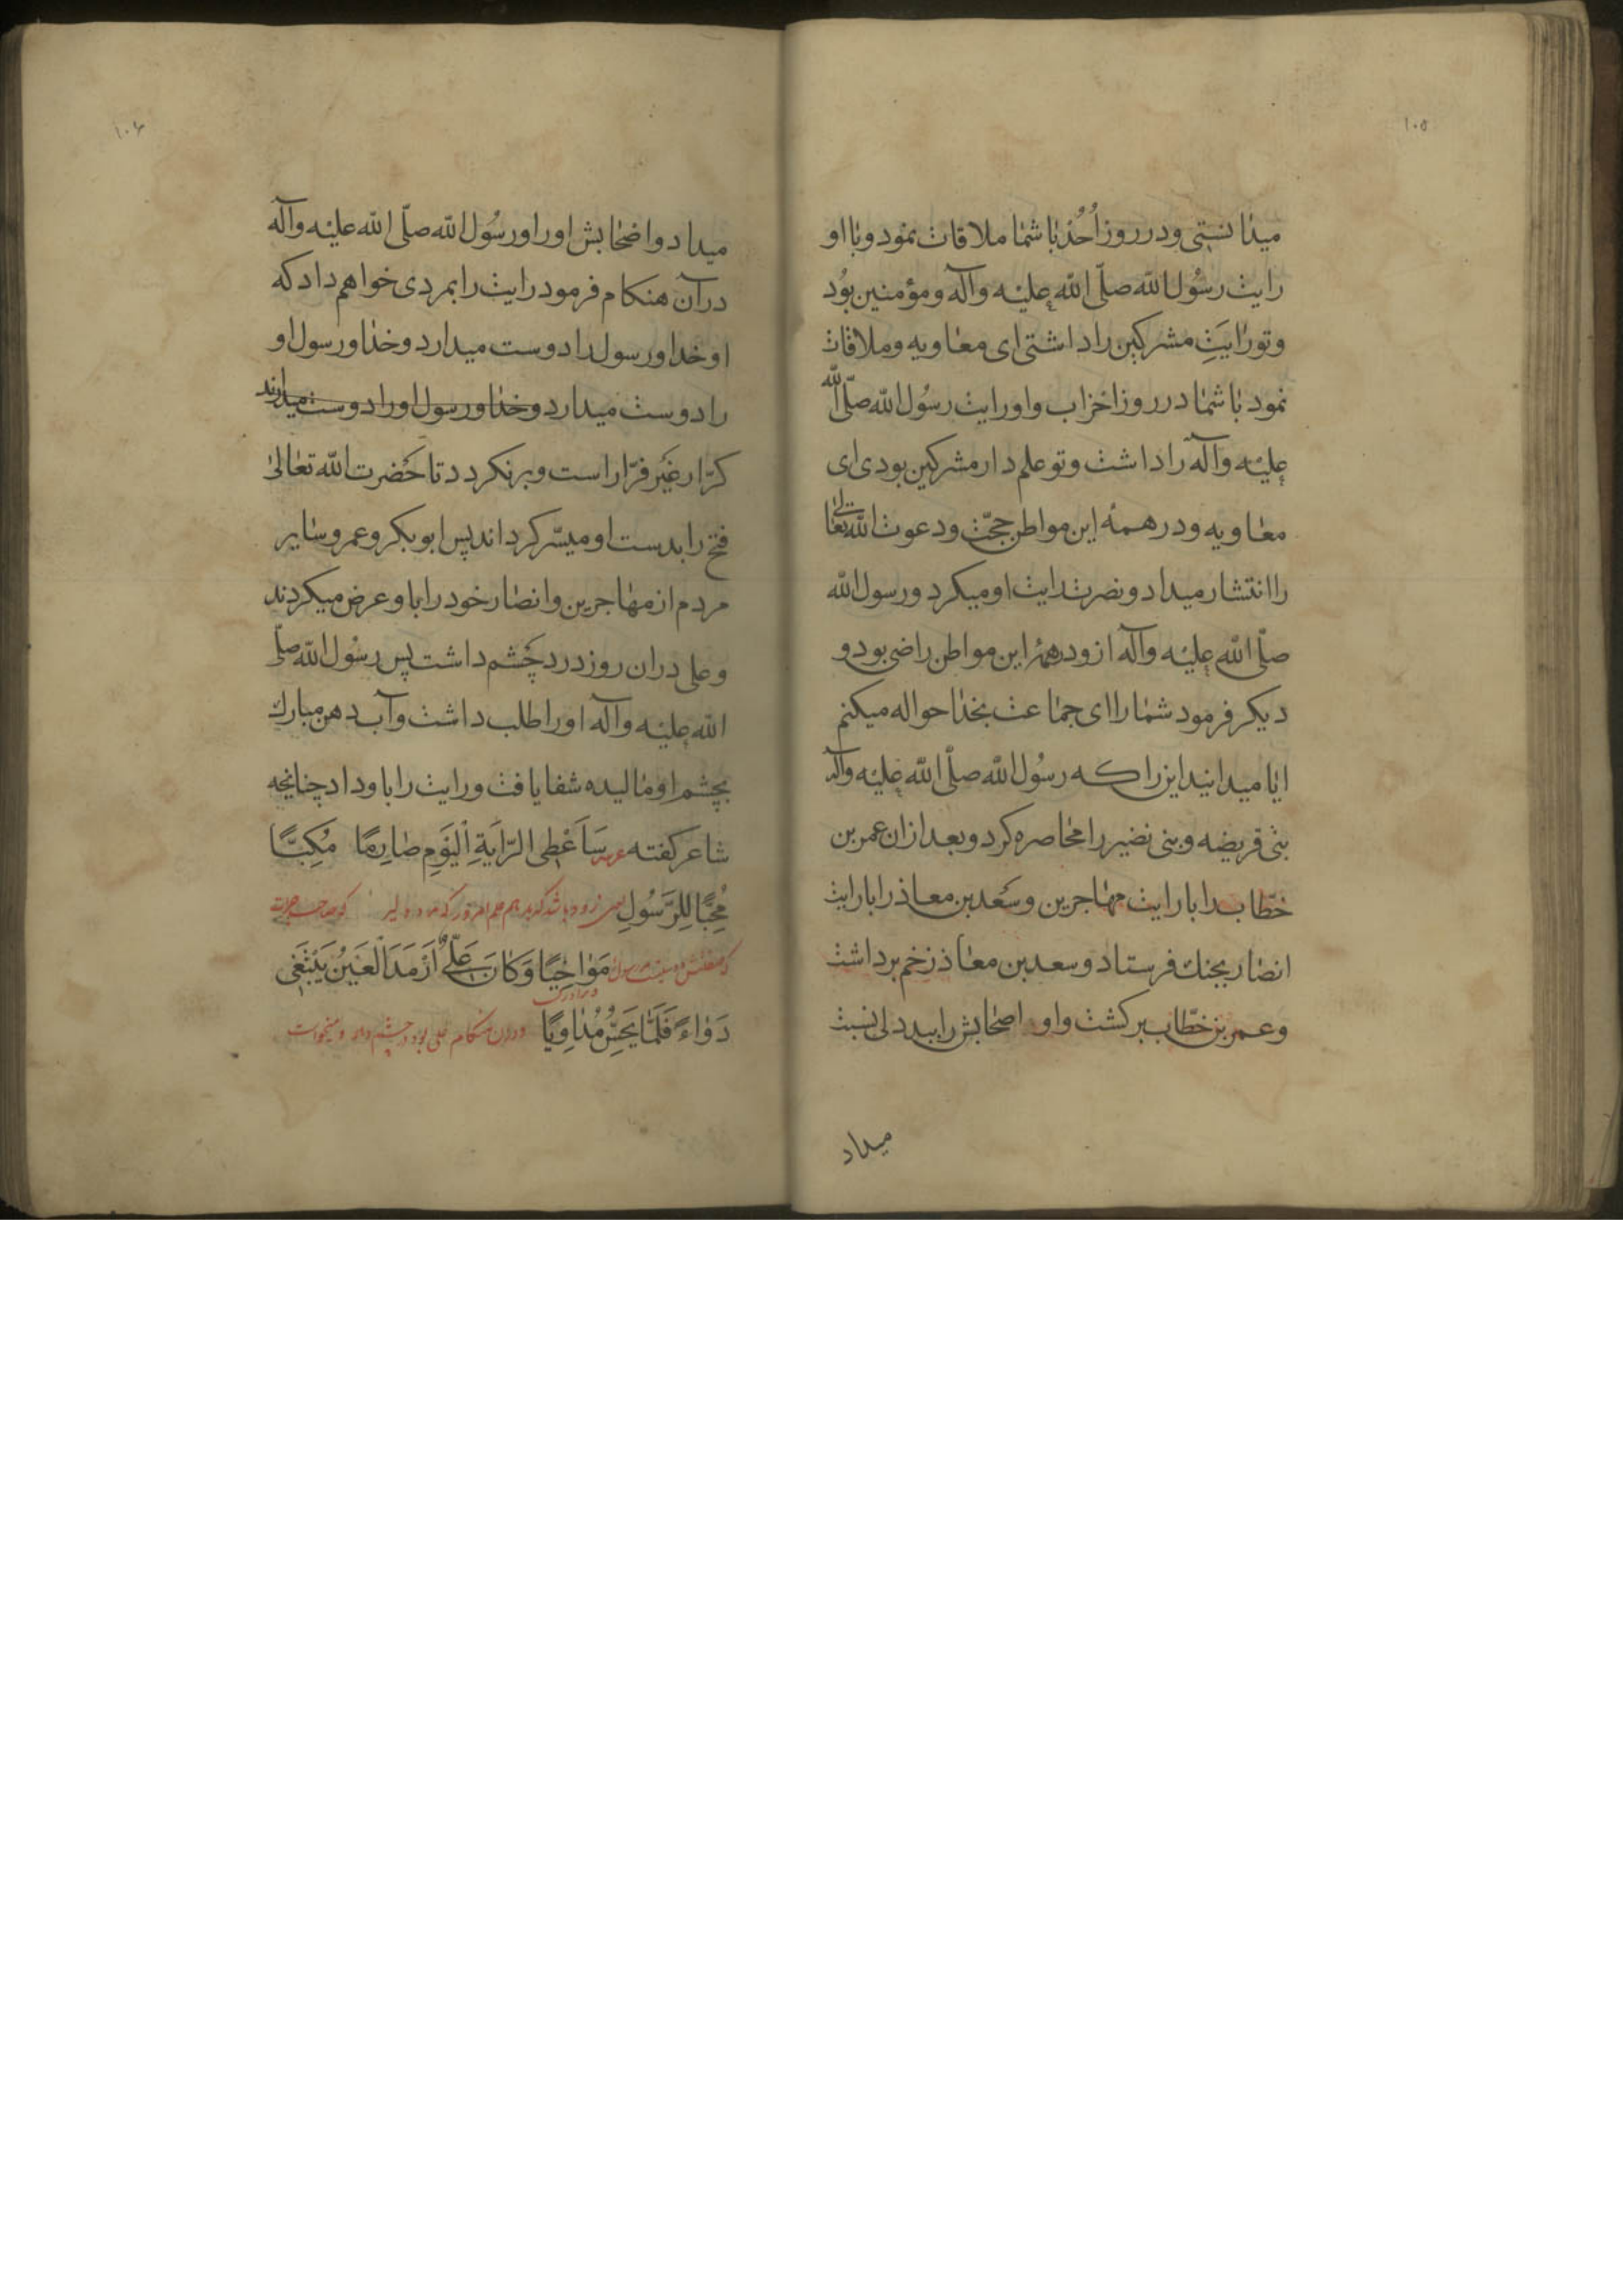 ١٠٥
میدانستی و در روز اُحُد با شما ملاقات نمود و با او
رایت رسُول الله صلّی الله علیه وآله و مؤمنین بُود
و تو رایَتِ مشرکین را داشتی ای معاویه و ملاقات
نمود با شما در روز احزاب و او رایت رسُول الله صلّی الله
علیه وآله را داشت و تو علم دار مشرکین بودی ای
معاویه و در همهٔ این مواطن حجّت و دعوت الله تعالی
را انتشار میداد و نصرت رایت او میکرد و رسول الله
صلّی الله علیه وآله ازو در همهٔ این مواطن راضی بود و
دیکر فرمود شما را ای جماعت بخدا حواله میکنم
ایا میدانید این را که رسُول الله صلّی الله علیه وآله
بنی قریضه و بنی نضیر را محاصره کرد و بعد ازان عمر بن
خطّاب را با رایت مهاجرین و سَعد بن معاذ را با رایت
انصار بجنك فرستاد و سعد بن معاذ زخم برداشت
و عمر بن خطّاب برکشت و او اصحابش را ببددلی نسبت
میداد
١٠٦
میداد و اصحابش او را و رسُول الله صلّی الله علیه وآله
در آن هنکام فرمود رایت را بمردی خواهم داد که
او خدا و رسول را دوست میدارد و خدا و رسول او
را دوست میدارد و خدا و رسول او را دوست میدارند
کرّار غیَر فرّار است و برنکردد تا حَضرت الله تعالیٰ
فتح را بدست او میسّر کرداند پس ابو بکر و عمر و سایر
مردم از مهاجرین و انصار خود را باو عرض میکردند
و علی دران روز درد چَشم داشت پس رسُول الله صلّی
الله علیه وآله او را طلب داشت و آب دهن مبارك
بچشم او مالیده شفا یافت و رایت را باو داد چنانچه
شاعر کفته سَاَعْطِی الرّایَةِ اَلْیَوَمِ صٰارِمًا مُکِبًّا
مُحِبًّا لِلرَّسُولِ
مَوٰاخِیًا وَکٰانَ عَلّیٌ اَرْمَدَ الْعَینُ یَبْتَغِی
دَوٰاءً فَلَمّا یَحَسُّ مُدٰاوِیًا دران هنکام علی بود درد چشم دار و میخواست